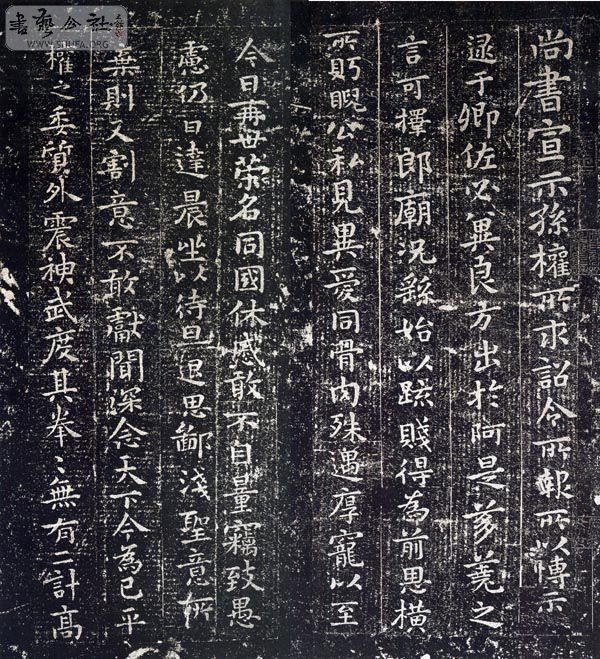 尚書宣示孫權所求詔令所報所以博示
逮于卿佐必冀良方出於阿是芻蕘之
言可擇郎廟況繇始以疏賤得為前恩橫
所䀤睨公私見異愛同骨肉殊遇厚寵以至
今日再世榮名同國休慼敢不自量竊致愚
慮仍日達晨坐以待旦退思鄙淺聖意所
棄則又割意不敢獻聞深念天下今為已平
權之委質外震神武度其拳〻無有二計高
書藝公社
WWW.SHUFA.ORG